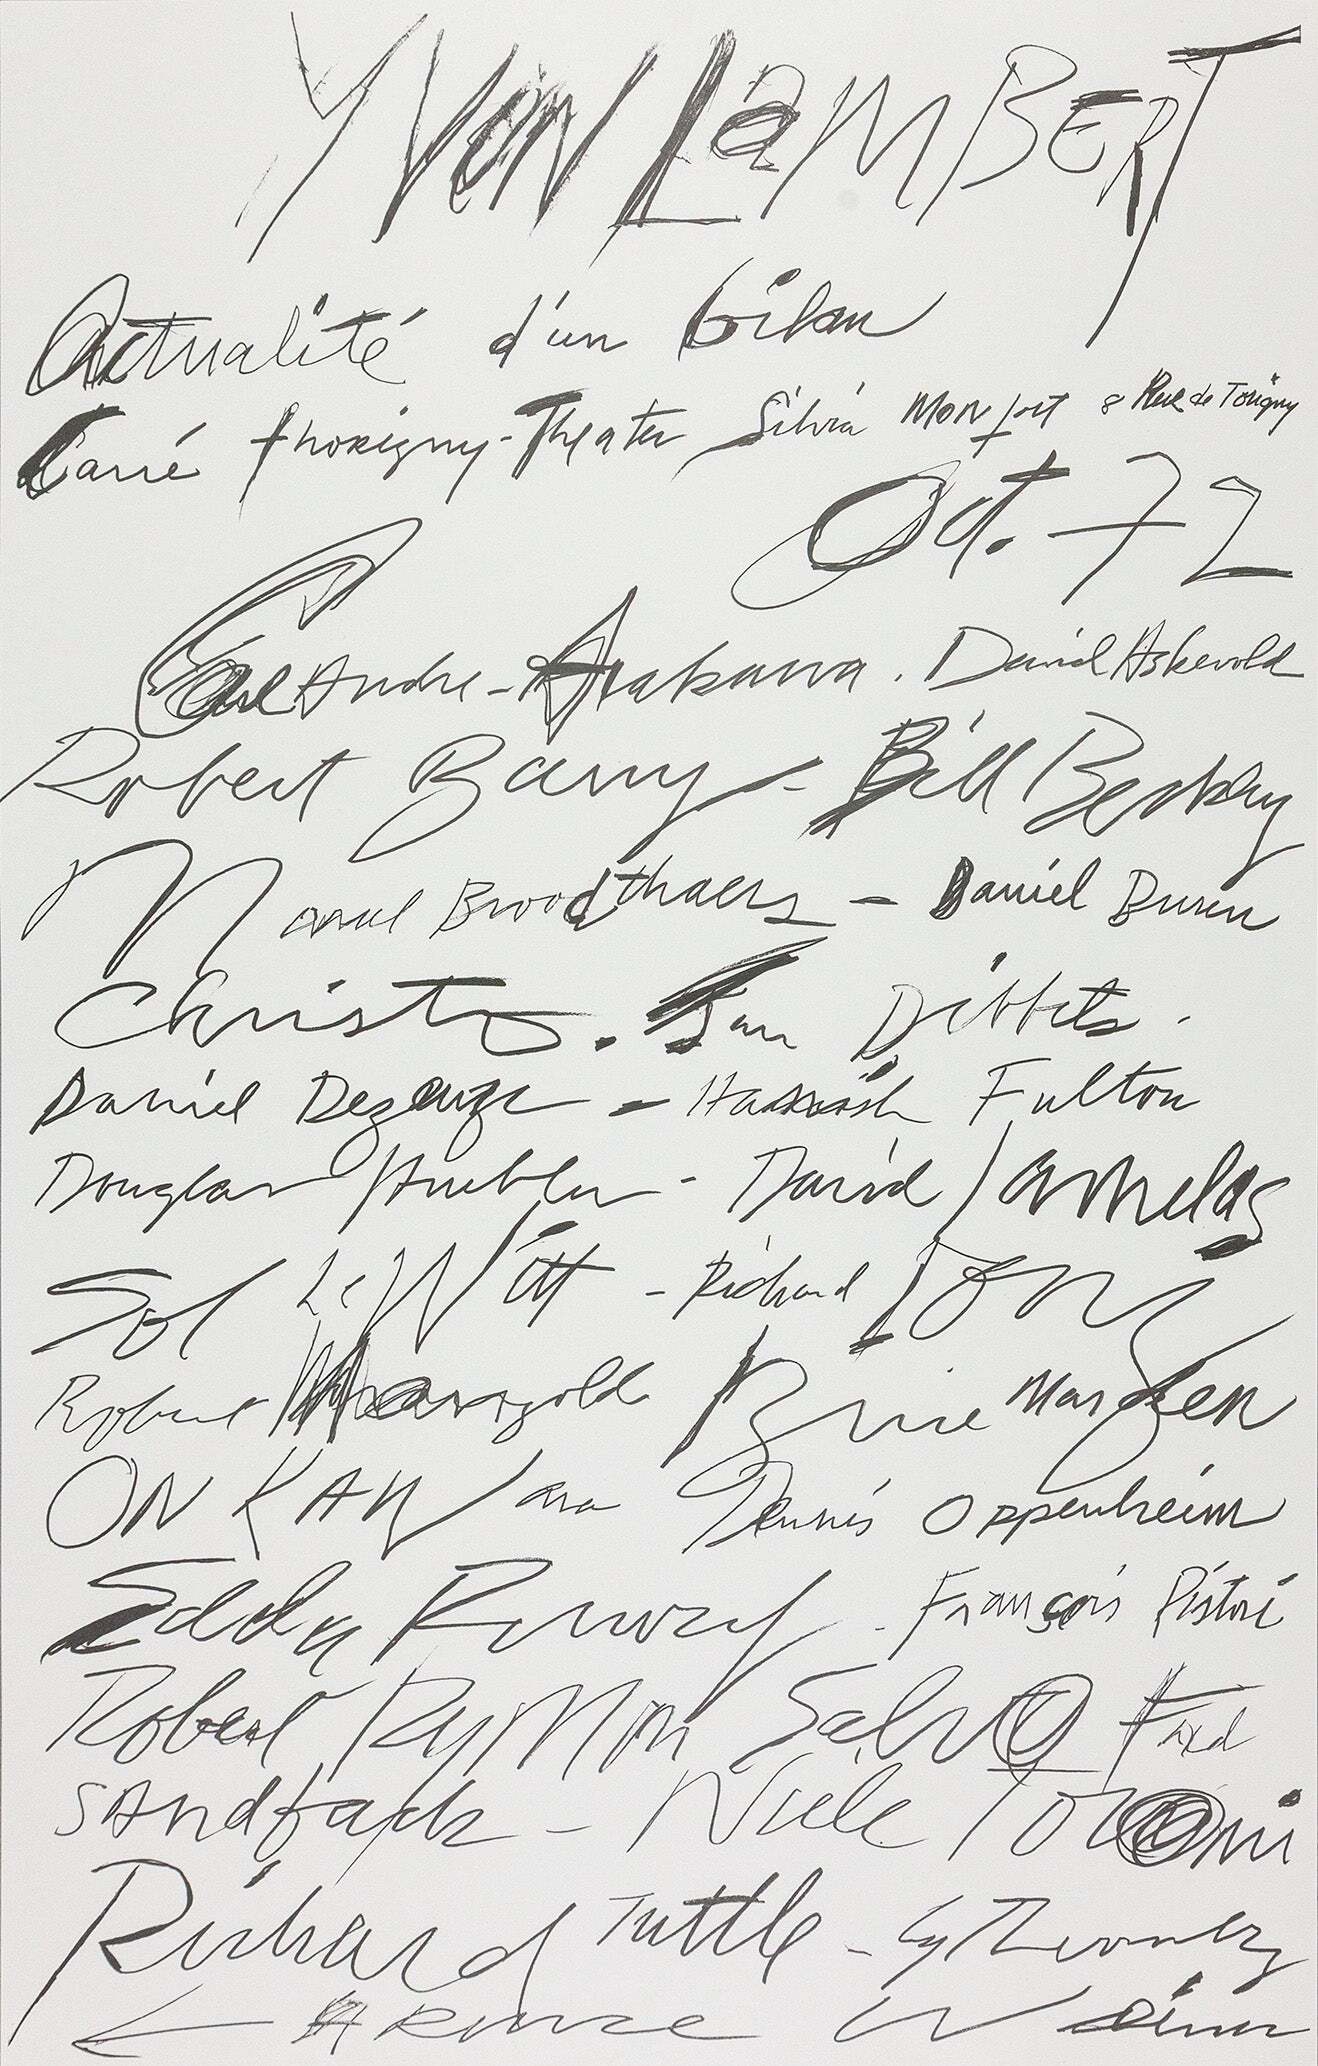 YVON LAMBERT
Actualité d'un bilan
Carré Thorigny - Theater Silvia Monfort 8 Rue de Torigny
Oct. 72
Carl Andre - Arakawa. David Askevold
Robert Barry - Bill Beckley
Marcel Broodthaers - Daniel Buren
Christo. Jan Dibbets.
Daniel Dezeuze - Hamish Fulton
Douglas Huebler - David Lamelas
Sol LeWitt - Richard Long
Robert Mangold Brice Marden
ON KAWara Dennis Oppenheim
Edda Renouf. François Ristori
Robert Ryman Salvo Fred
Sandback - Niele Toroni
Richard Tuttle - Cy Twombly
← Lawrence Weiner